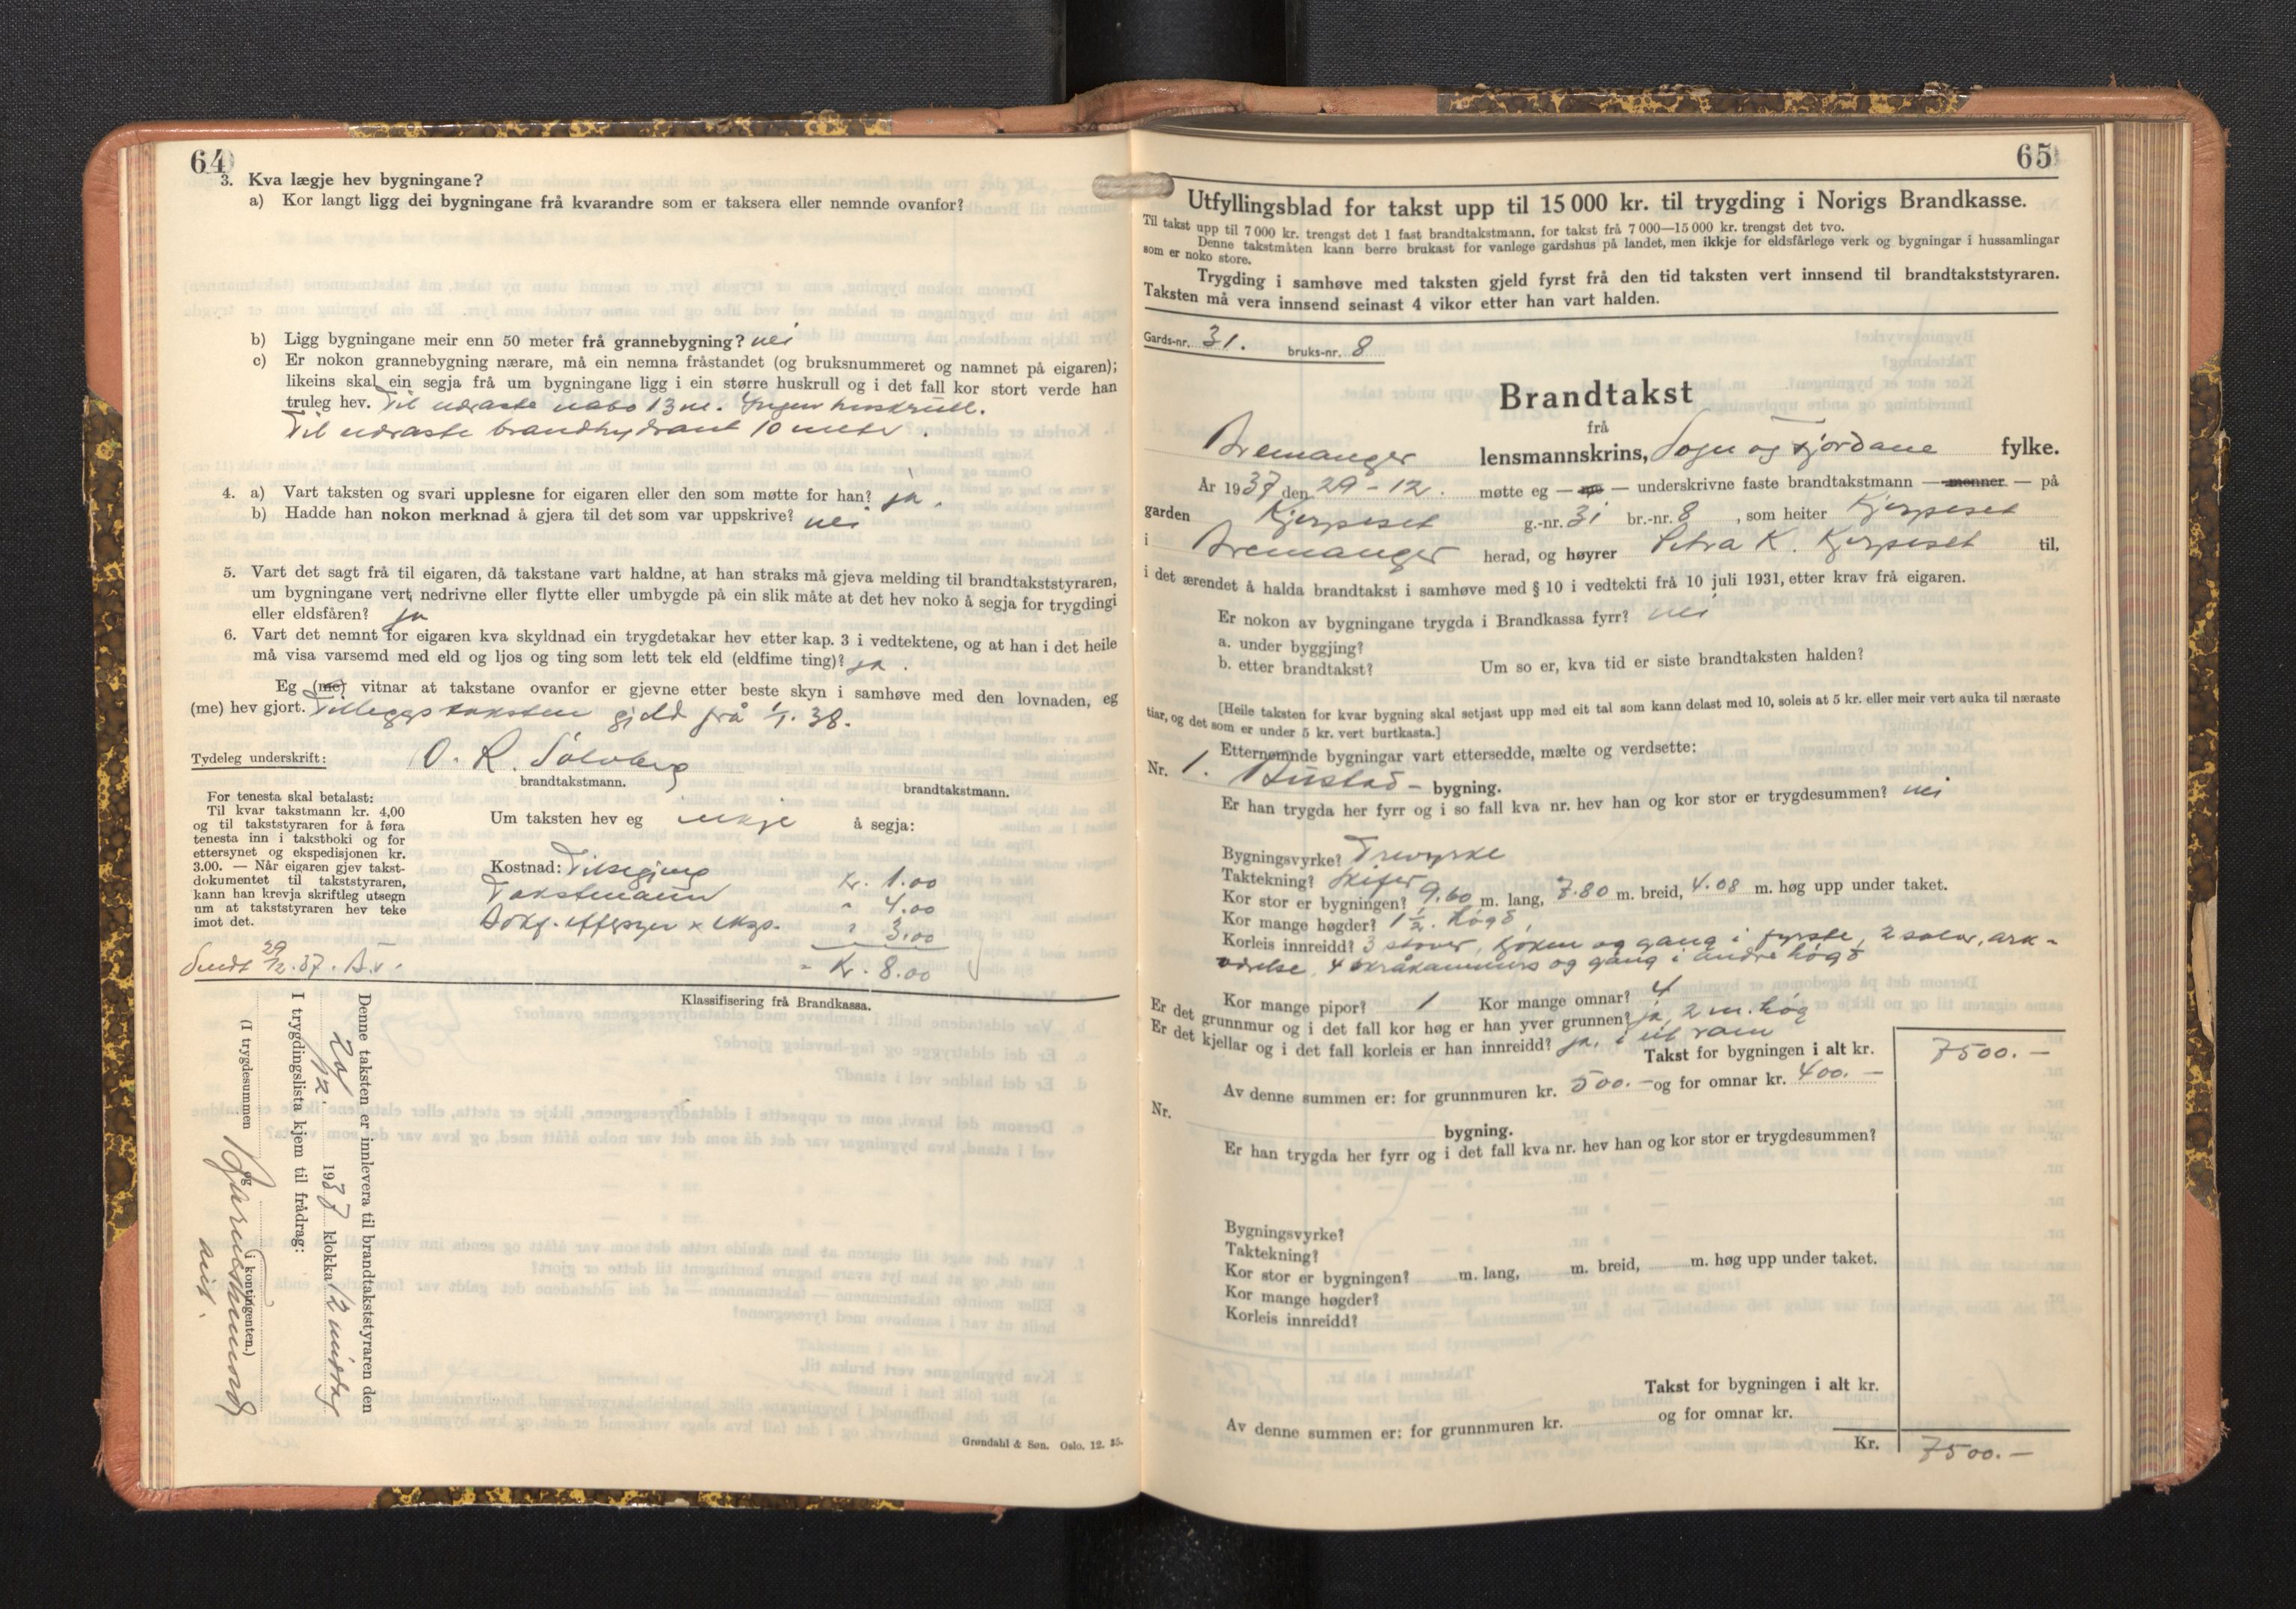 64
3. Kva lægje hev bygningane?
a) Kor langt ligg dei bygningane frå kvarandre som er taksera eller nemnde ovanfor?
b) Ligg bygningane meir enn 50 meter frå grannebygning? nei
c) Er nokon grannebygning nærare, må ein nemna fråstandet (og bruksnummeret og namnet på eigaren);
likeins skal ein segja frå um bygningane ligg i ein større huskrull og i det fall kor stort verde han
truleg hev. Til næraste nabo 13 m. Ingen huskrull.
Til næraste brandhydrant 10 meter.
4. a) Vart taksten og svari upplesne for eigaren eller den som møtte for han? ja.
b) Hadde han nokon merknad å gjera til det som var uppskrive? nei
5. Vart det sagt frå til eigaren, då takstane vart haldne, at han straks må gjeva melding til brandtakststyraren,
um bygningane vert nedrivne eller flytte eller umbygde på ein slik måte at det hev noko å segja for trygdingi
eller eldsfåren? ja
6. Vart det nemnt for eigaren kva skyldnad ein trygdetakar hev etter kap. 3 i vedtektene, og at han i det heile
må visa varsemd med eld og ljos og ting som lett tek eld (eldfime ting)? ja.
Eg (me) vitnar at takstane ovanfor er gjevne etter beste skyn i samhøve med den lovnaden, eg
(me) hev gjort. Tilleggstaksten gjeld frå 1/1. 38.
Tydeleg underskrift: O. R. Sölvberg
brandtakstmann. brandtakstmann.
For tenesta skal betalast:
Til kvar takstmann kr. 4,00
og til takststyraren for å føra
tenesta inn i takstboki og for
ettersynet og ekspedisjonen kr.
3.00. — Når eigaren gjev takst-
dokumentet til takststyraren,
kann han krevja skriftleg utsegn
um at takststyraren hev teke
imot det.
Um taksten hev eg ikkje å segja:
Kostnad: Tilsegjing Kr. 1.00
Takstmann " 4.00
" 3.00
Kr. 8.00
Sendt 29/12.37.
Klassifisering frå Brandkassa.
Denne taksten er innlevera til brandtakststyraren den
29/12. 1937 klokka 12 middag
I trygdingslista kjem til frådrag:
(I trygdesummen og i kontingenten.)
Grøndahl & Søn. Oslo. 12. 35.
65
Utfyllingsblad for takst upp til 15 000 kr. til trygding i Norigs Brandkasse.
Til takst upp til 7 000 kr. trengst det 1 fast brandtakstmann, for takst frå 7 000—15 000 kr. trengst det tvo.
Denne takstmåten kann berre brukast for vanlege gardshus på landet, men ikkje for eldsfårlege verk og bygningar i hussamlingar
som er noko store.
Trygding i samhøve med taksten gjeld fyrst frå den tid taksten vert innsend til brandtakststyraren.
Taksten må vera innsend seinast 4 vikor etter han vart halden.
Gards-nr. 31. bruks-nr. 8
Brandtakst
frå
Bremanger lensmannskrins, Sogn og Fjordane fylke.
År 1937 den 29-12. møtte eg — me — underskrivne faste brandtakstmann — menner — på
garden Kjerpeset g.-nr. 31 br.-nr. 8, som heiter Kjerpeset
i Bremanger herad, og høyrer Petra K. Kjerpeset til.
i det ærendet å halda brandtakst i samhøve med § 10 i vedtekti frå 10 juli 1931, etter krav frå eigaren.
Er nokon av bygningane trygda i Brandkassa fyrr? nei
a. under byggjing?
b. etter brandtakst? Um so er, kva tid er siste brandtaksten halden?
[Heile taksten for kvar bygning skal setjast upp med eit tal som kann delast med 10, soleis at 5 kr. eller meir vert auka til næraste
tiar, og det som er under 5 kr. vert burtkasta.]
Etternemnde bygningar vart ettersedde, mælte og verdsette:
Nr. 1. Bustad - bygning.
Er han trygda her fyrr og i so fall kva nr. hev han og kor stor er trygdesummen? nei
Bygningsvyrke? Trevyrke
Taktekning? Skifer
Kor stor er bygningen? 9.60 m. lang, 7.80 m. breid, 4.08 m. høg upp under taket.
Kor mange høgder? 1 1/2. høgd
Korleis innreidd? 3 stover, kjøken og gang i fyrste, 2 salar, ark-
værelse, 4 skråkammers og gang i andre høgd
Kor mange pipor? 1 Kor mange omnar? 4
Er det grunnmur og i det fall kor høg er han yver grunnen? ja, 2 m. høg
Er det kjellar og i det fall korleis er han innreidd? ja, i eit rom
Takst for bygningen i alt kr. 7500.-
Av denne summen er: for grunnmuren kr. 500.- og for omnar kr. 400.-
Nr. bygning.
Er han trygda her fyrr og i det fall kva nr. hev han og kor stor er trygdesummen?
Bygningsvyrke?
Taktekning?
Kor stor er bygningen? m. lang, m. breid, m. høg upp under taket.
Kor mange høgder?
Korleis innreidd?
Takst for bygningen i alt kr.
Av denne summen er: for grunnmuren kr. og for omnar kr.
Kr. 7500.-